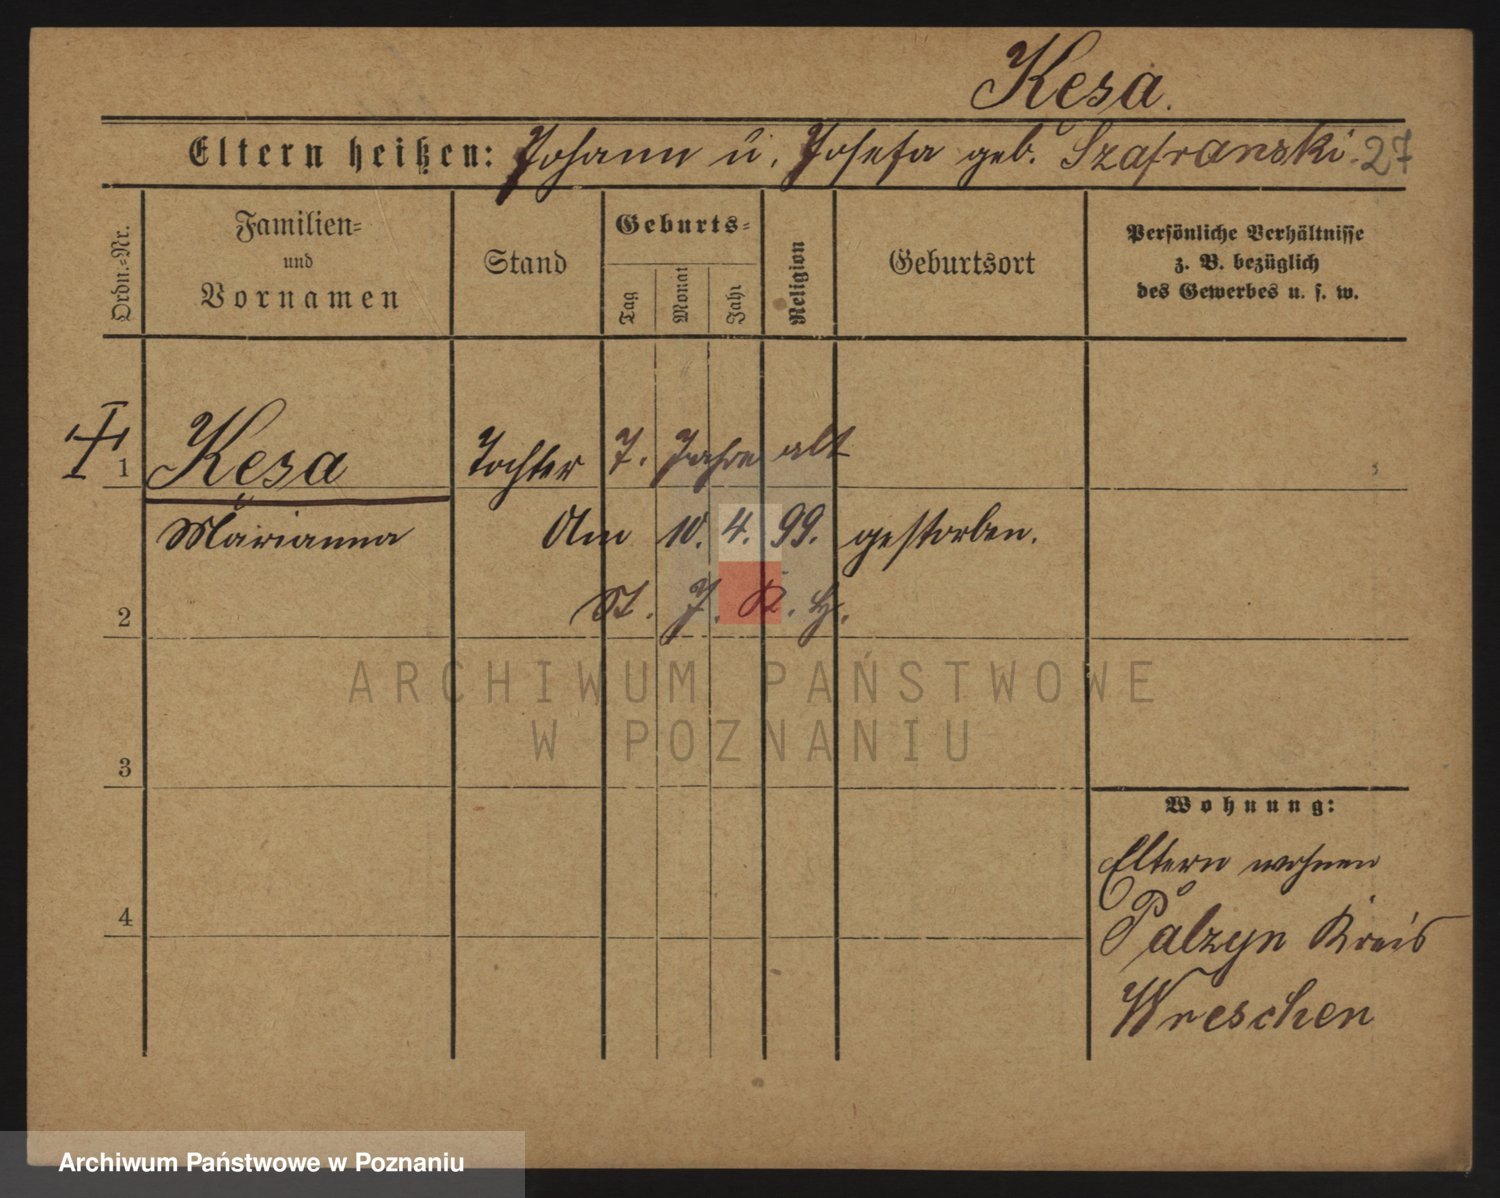 Kesa.
Eltern heißen: Johann u. Josefa geb. Szafranski. 27
Ordn.-Nr.
Familien-
und
Vornamen
Stand
Geburts-
Tag
Monat
Jahr
Religion
Geburtsort
Persönliche Verhältnisse
z. B. bezüglich
des Gewerbes u. s. w.
1 Kesa Tochter 7. Jahre alt
Marianna Am 10. 4. 99. gestorben.
2 St. J. K. H.
ARCHIWUM PAŃSTWOWE
W POZNANIU
3
Wohnung:
Eltern wohnen
4 Palzyn Kreis
Wreschen
Archiwum Państwowe w Poznaniu